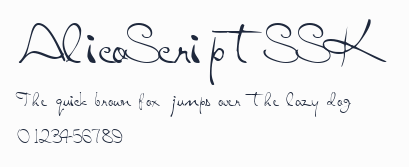 AlicaScript SSK
The quick brown fox jumps over the lazy dog
0123456789